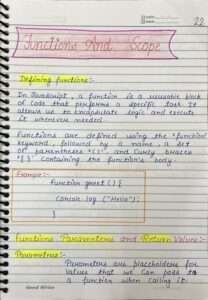 22
Functions And Scope
Defining functions:-
In JavaScript, a function is a reusable block
of code that performs a specific task. It
allows us to encapsulate logic and execute
it whenever needed.
Functions are defined using the 'function'
keyword, followed by a name, a set
of parentheses '()' and curly braces
'{ }' containing the function's body.
Example:-
function greet () {
console.log ("Hello");
}
Functions Parameters and Return Values:-
Parameters:-
Parameters are placeholders for
values that we can pass to
a function when calling it.